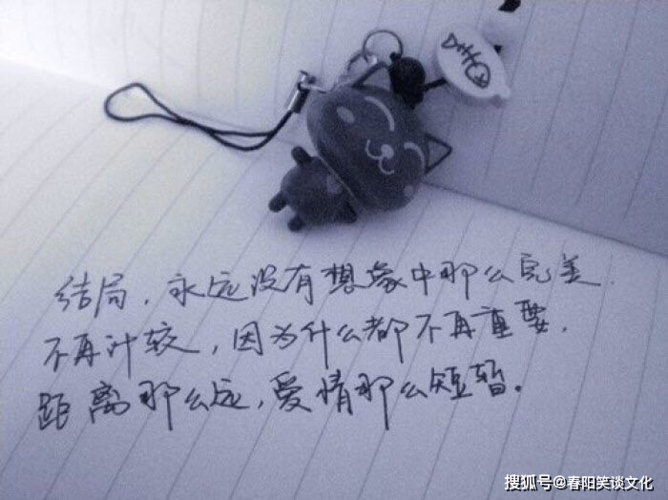 结局，永远没有想象中那么完美.
不再计较，因为什么都不再重要，
距离那么远，爱情那么短暂。
搜狐号@春阳笑谈文化